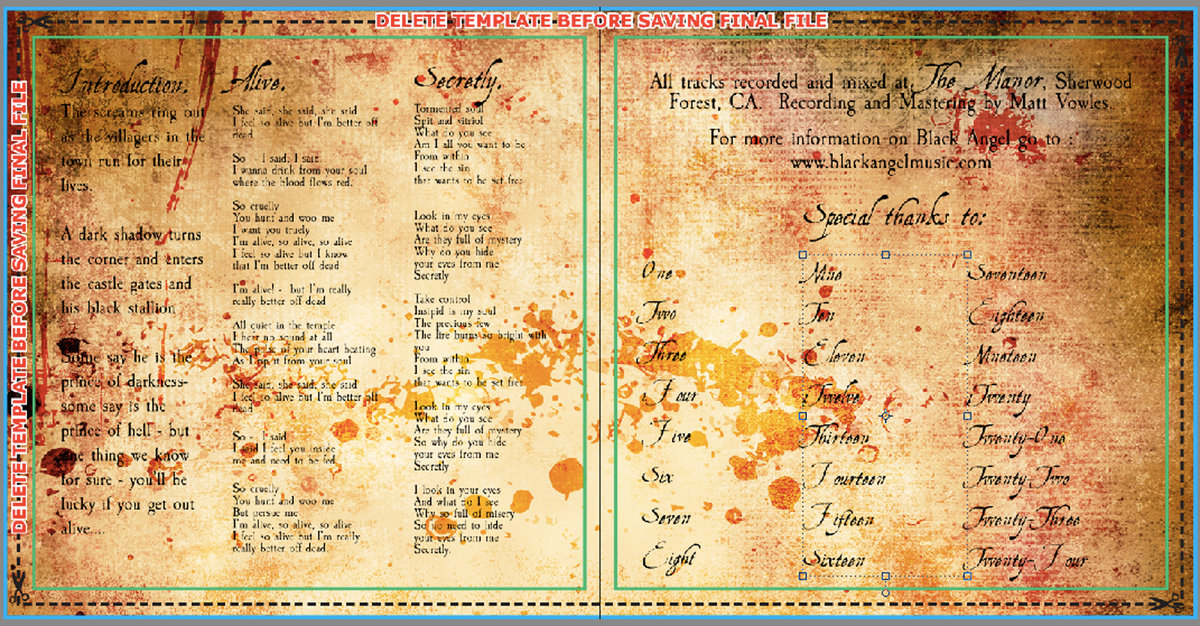 DELETE TEMPLATE BEFORE SAVING FINAL FILE
DELETE TEMPLATE BEFORE SAVING FINAL FILE
Introduction.
The screams ring out
as the villagers in the
town run for their
lives.
A dark shadow turns
the corner and enters
the castle gates and
his black stallion
Some say he is the
prince of darkness-
some say is the
prince of hell - but
one thing we know
for sure - you'll be
lucky if you get out
alive....
Alive.
She said, she said, she said
I feel so alive but I'm better off
dead.
So - I said, I said
I wanna drink from your soul
where the blood flows red.
So cruelly
You hunt and woo me
I want you truely
I'm alive, so alive, so alive
I feel so alive but I know
that I'm better off dead
I'm alive! - but I'm really
really better off dead
All quiet in the temple
I hear no sound at all
The pulse of your heart beating
As I rip it from your soul
She said, she said, she said
I feel so alive but I'm better off
dead
So - I said
I said I feel you inside
me and need to be fed
So cruelly
You hunt and woo me
But persue me
I'm alive, so alive, so alive
I feel so alive but I'm really
really better off dead.
Secretly.
Tormented soul
Spit and vitriol
What do you see
Am I all you want to be
From within
I see the sin
that wants to be set free
Look in my eyes
What do you see
Are they full of mystery
Why do you hide
your eyes from me
Secretly
Take control
Insipid is my soul
The precious few
The fire burns so bright with
you
From within
I see the sin
that wants to be set free
Look in my eyes
What do you see
Are they full of mystery
So why do you hide
your eyes from me
Secretly
I look in your eyes
And what do I see
Why so full of misery
So no need to hide
your eyes from me
Secretly.
All tracks recorded and mixed at The Manor, Sherwood
Forest, CA. Recording and Mastering by Matt Vowles.
For more information on Black Angel go to :
www.blackangelmusic.com
Special thanks to:
One
Two
Three
Four
Five
Six
Seven
Eight
Nine
Ten
Eleven
Twelve
Thirteen
Fourteen
Fifteen
Sixteen
Seventeen
Eighteen
Nineteen
Twenty
Twenty-One
Twenty-Two
Twenty-Three
Twenty-Four